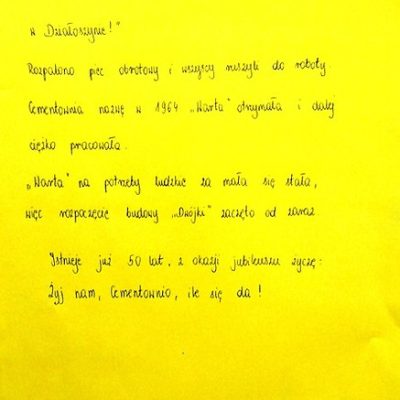 w Działoszynie!"
Rozpalono piec obrotowy i wszyscy ruszyli do roboty.
Cementownia nazwę w 1964 „Warta" otrzymała i dalej
ciężko pracowała.
„Warta" na potrzeby ludzkie za mała się stała,
więc rozpoczęcie budowy „Dwójki" zaczęto od zaraz.
Istnieje już 50 lat, z okazji jubileuszu życzę:
Żyj nam, Cementownio, ile się da!